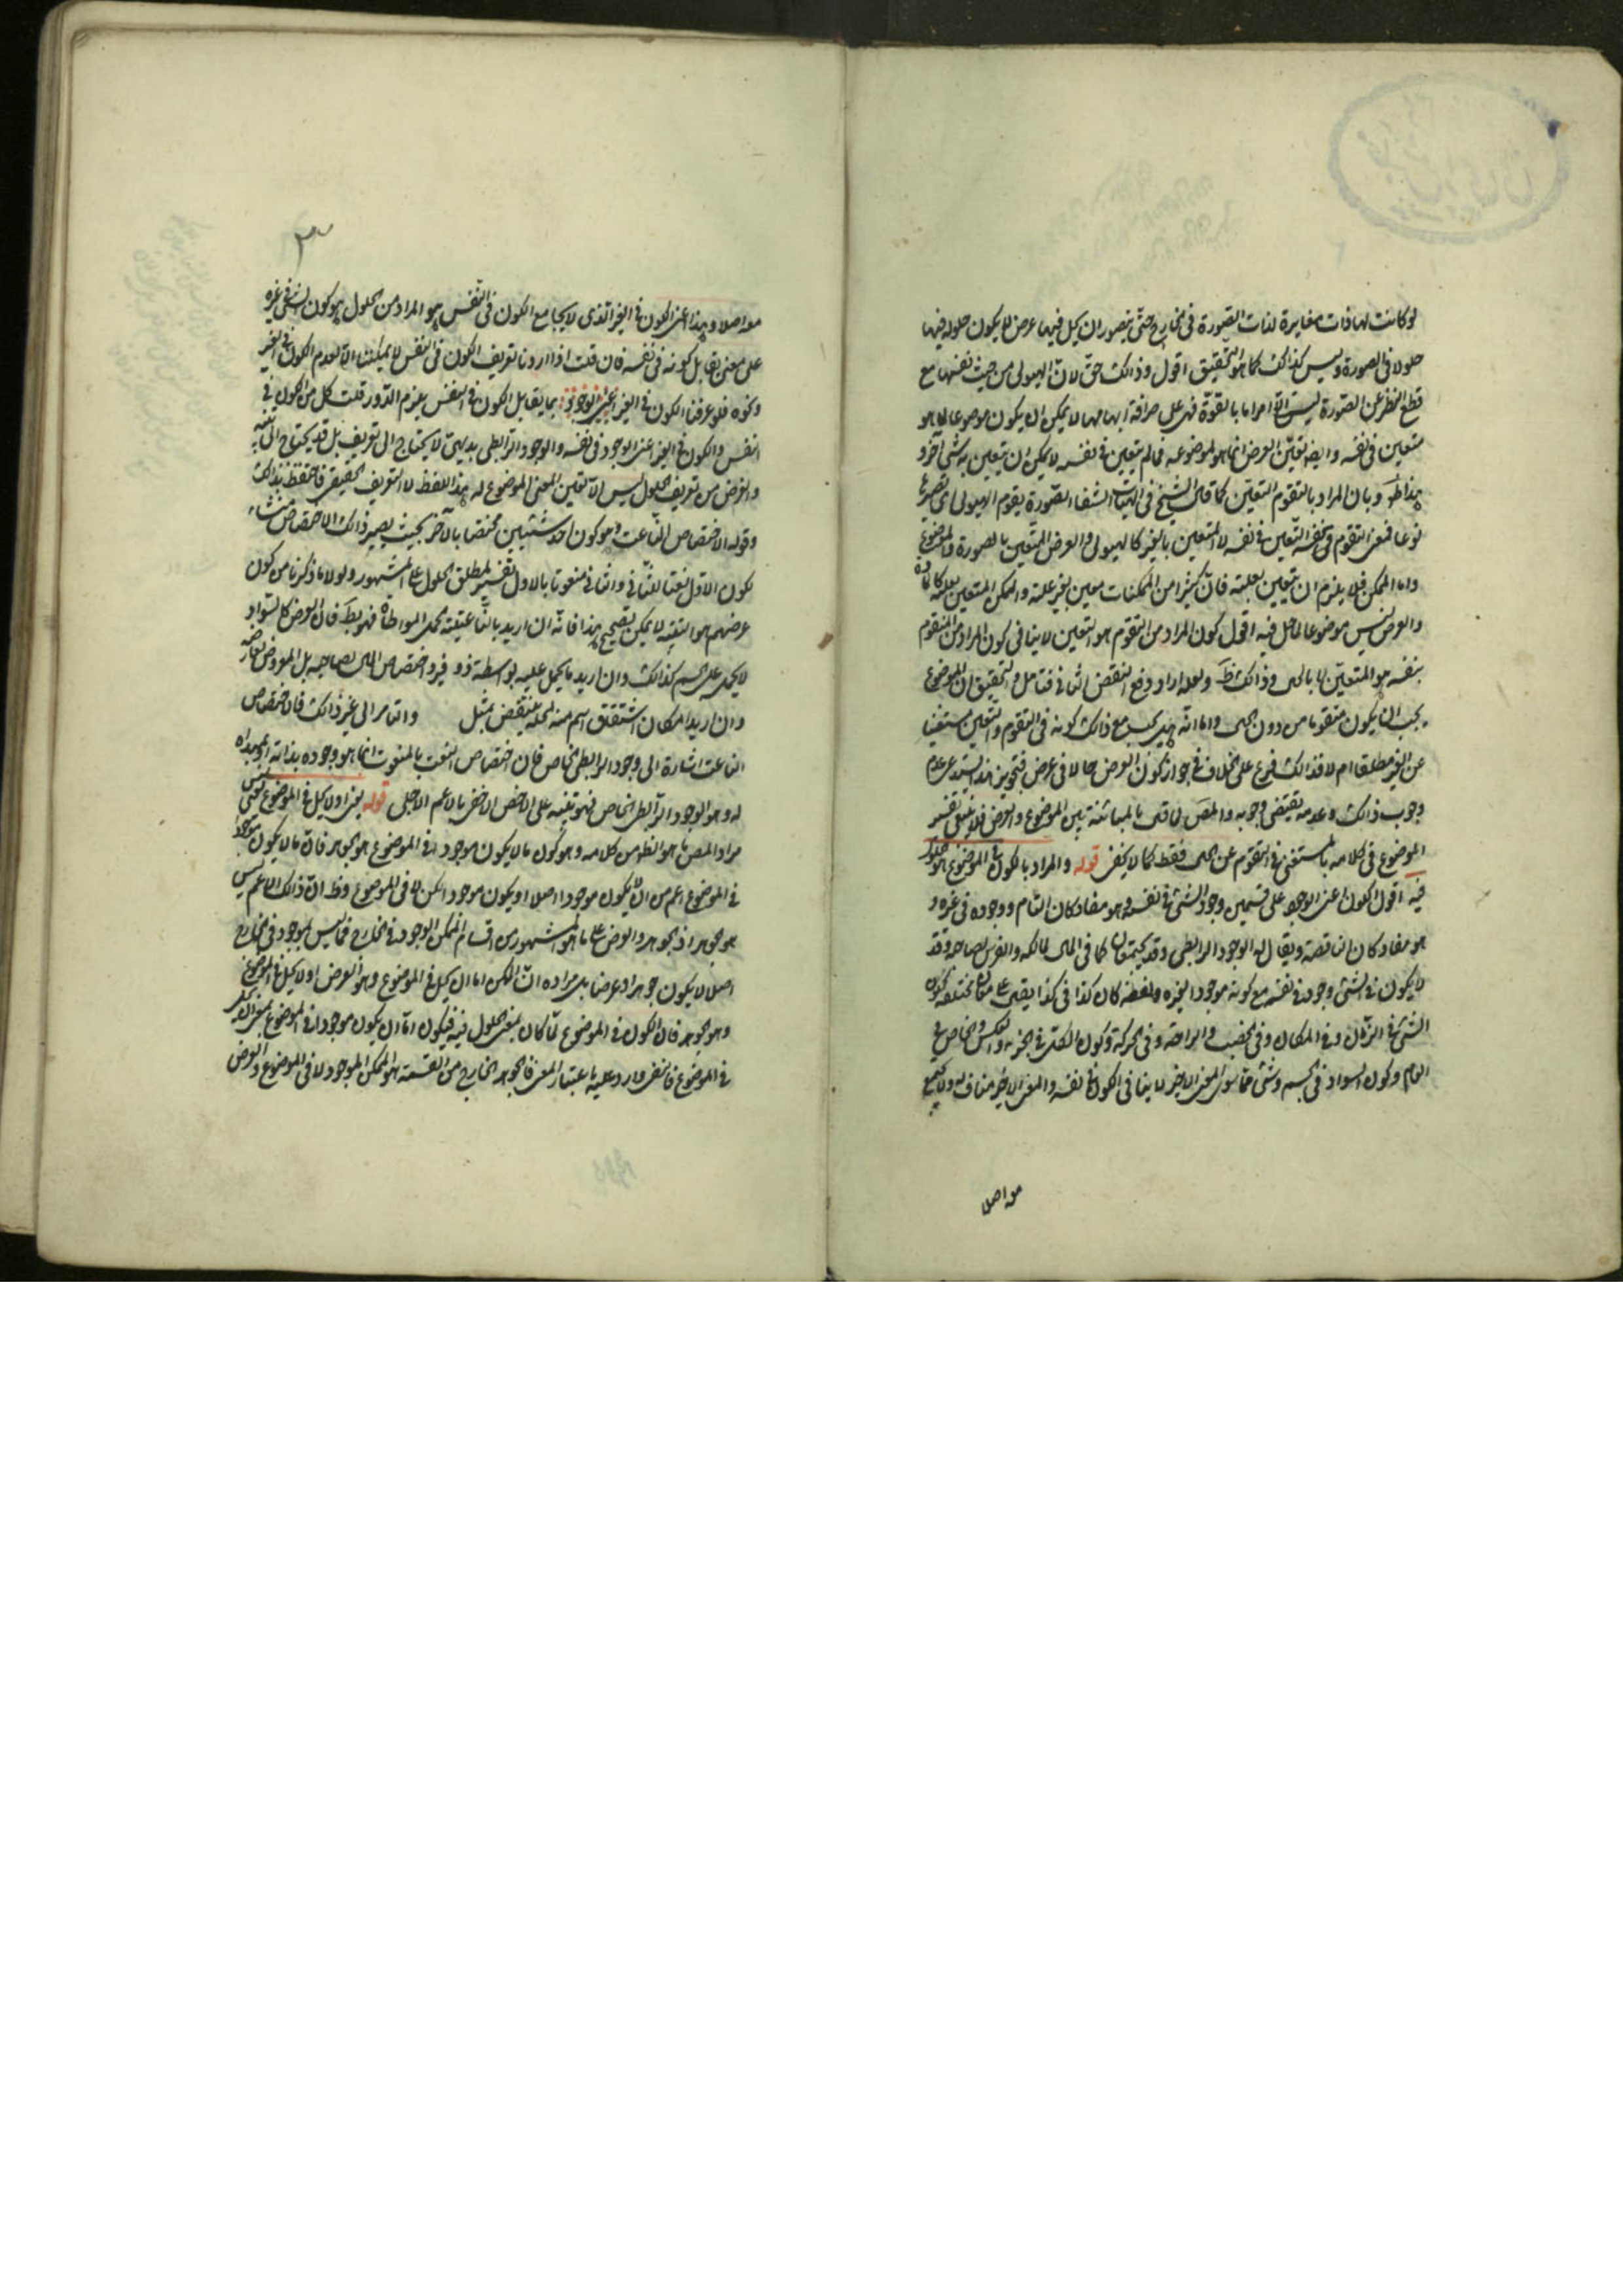 لو كانت لها ذات مغايرة لذات الصورة فى الخارج حتى يتصور ان يحل فيها عرض لا يكون حلوله فيها
حلولا فى الصورة وليس كذلك كما هو التحقيق اقول وذلك حق لان الهيولى من حيث نفسها مع
قطع النظر عن الصورة ليست الا امرا ما بالقوة فهى على صرافة ابهامها لا يمكن ان يكون موضوعا لما هو
متعين فى نفسه وايضا تعين العرض انما هو لموضوعه فما لم يتعين فى نفسه لا يمكن ان يتعين به شىء آخر و
بهذا ظهر وبان المراد بالتقوم التعين كما قال الشيخ فى الهيات الشفاء الصورة يقوم الهيولى اى
نوعا فمعنى التقوم فى نفسه التعين فى نفسه لا المتعين بالغير كالهيولى والعرض المتعين بالصورة والموضوع
واما الممكن فلا يلزم ان يتعين بعلته فان كثيرا من الممكنات معين بغير علته والممكن المتعين بعلته
والعرض ليس موضوعا لما حل فيه اقول كون المراد من التقوم هو التعين لا ينافى كون المراد من المتقوم
بنفسه هو المتعين لا بالحال وذلك ظ ولعله اراد دفع النقض الثانى فتامل والتحقيق ان الموضوع
يجب ان يكون متقوما من دون الحال واما انه هل يجب مع ذلك كونه فى التقوم والتعين مستغنيا
عن الغير مطلقا ام لا فذلك فرع على الخلاف فى جواز كون العرض حالا فى عرض فتجويز هذا يستدعى عدم
وجوب ذلك وعدمه يقتضى وجوبه والمص لما قال بالمباينة بين الموضوع والعرض فلا ينبغى تفسير
الموضوع فى كلامه بالمستغنى فى التقوم عن الحال فقط كما لا يخفى قوله والمراد بالكون فى الموضوع هو حلول
فيه اقول الكون اعنى الوجود على قسمين وجود الشىء فى نفسه وهو مفاد كان التام ووجوده فى غيره و
هو مفاد كان الناقصة ويقال له الوجود الرابطى وقد يجتمعان كما فى المال لمالكه والفرس لصاحبه وقد
لا يكون فى الشىء وجود فى نفسه مع كونه موجودا لغيره ولفظة كان كذا فى كذا يقال على معان مختلفة ككون
الشىء فى الزمان وفى المكان وفى الخصب والراحة وفى الحركة وكون الكل فى الجزء والعكس والخاص فى
العام وكون السواد فى الجسم وشىء مما سوى المعنى الاخير لا ينافى الكون فى نفسه والمعنى الاخير مناف له ولا يجتمع
معه اصلا
معه اصلا وهذا اعنى الكون فى الغير الذى لا يجامع الكون فى النفس هو المراد من الحلول وهو كون الشىء فى غيره
على معنى يقابل كونه فى نفسه فان قلت اذا اردنا تعريف الكون فى النفس لا يمكننا الا بعدم الكون فى الغير
ونحوه فلو عرفنا الكون فى الغير بما يقابل الكون فى النفس يلزم الدور قلت كل من الكون فى
النفس والكون فى الغير اعنى الوجود فى نفسه والوجود الرابطى بديهى لا يحتاج الى تعريف بل قد يحتاج الى تنبيه
والغرض من تعريف الحلول ليس الا تعيين المعنى الموضوع له بهذا اللفظ لا التعريف الحقيقى فاحتفظ بذلك
وقوله الاختصاص الناعت وهو كون احد شيئين مختصا بالآخر بحيث يصير ذلك الاختصاص منشاء
لكون الاول نعتا للثانى والثانى منعوتا بالاول تفسير لمطلق الحلول على المشهور ولولا ما ذكرنا من كون
غرضهم هو التنبيه لا يمكن تصحيح هذا فانه ان اريد بالناعتية الحمل المواطاة فهو بط فان العرض كالسواد
لا يحمل على الجسم كذلك وان اريد ما يحمل عليه بواسطة ذو فيرد اختصاص المال بصاحبه بل المعروض لعارضه
وان اريد امكان اشتقاق اسم منه لمحله فينتقض بمثل والتامر الى غير ذلك فالاختصاص
الناعت اشارة الى وجود الرابطى الخاص فان اختصاص النعت بالمنعوت انما هو وجوده بذاته او بمبداه
له وهو الوجود الرابطى الخاص فهو تنبيه على الاخص الاخفى بالاعم الاجلى قوله يعنى او لا يحل فى الموضوع ليس
مراد المص ما هو الظ من كلامه وهو كون ما لا يكون موجودا فى الموضوع هو الجوهر فان ما لا يكون موجودا
فى الموضوع اعم من ان لا يكون موجودا اصلا او يكون موجودا لكن لا فى الموضوع وظ ان ذلك الاعم ليس
هو الجوهر اذ الجوهر والعرض على ما هو المشهور من اقسام الممكن الموجود فى الخارج فما ليس لموجود فى الخارج
اصلا لا يكون جوهرا وعرضا بل مراده ان الممكن اما ان يحل فى الموضوع وهو العرض او لا يحل فى الموضوع
وهو الجوهر فان الكون فى الموضوع لما كان بمعنى الحلول فيه فيكون اما ان يكون موجودا فى الموضوع بمعنى
فى الموضوع فالنفى وارد عليه باعتبار المعنى فالجوهر الخارج من القسمة هو الممكن الموجود لا فى الموضوع والعرض